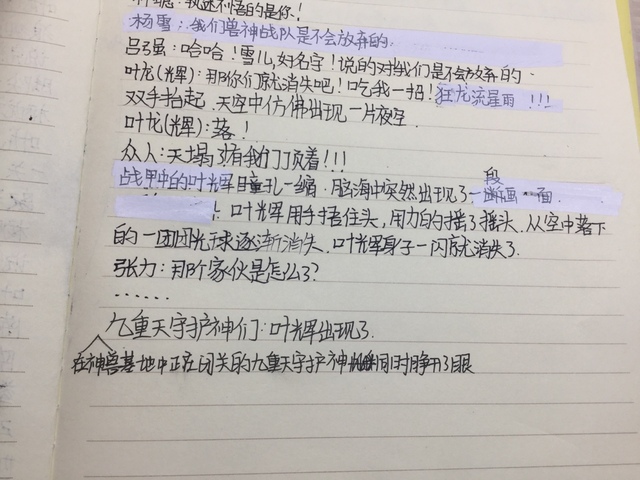 执迷不悟的是你！
杨雪：我们兽神战队是不会放弃的。
吕强：哈哈！雪儿，好名字！说的对我们是不会放弃的．
叶龙(辉)：那你们就消失吧！吃我一招！狂龙流星雨！！！
双手抬起，天空中仿佛出现一片夜空．
叶龙(辉)：落！
众人：天塌了有我们顶着！！！
段
战甲中的叶光辉瞳孔一缩．脑海中突然出现了一断画面．
！叶光辉用手捂住头，用力的摇了摇头．从空中落下
的一团团光球逐渐消失．叶光辉身子一闪就消失了．
张力：那个家伙是怎么了？
……
九重天守护神们：叶光辉出现了．
在神兽基地中正在闭关的九重天守护神同时睁开了眼